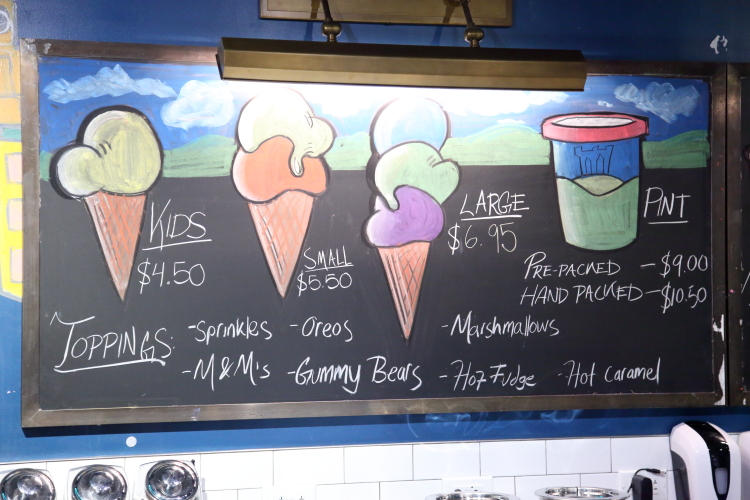 KIDS
$4.50
SMALL
$5.50
LARGE
$6.95
PINT
PRE-PACKED - $9.00
HAND PACKED - $10.50
TOPPINGS:
-Sprinkles -Oreos -Marshmallows
-M&M's -Gummy Bears -Hot Fudge -Hot Caramel